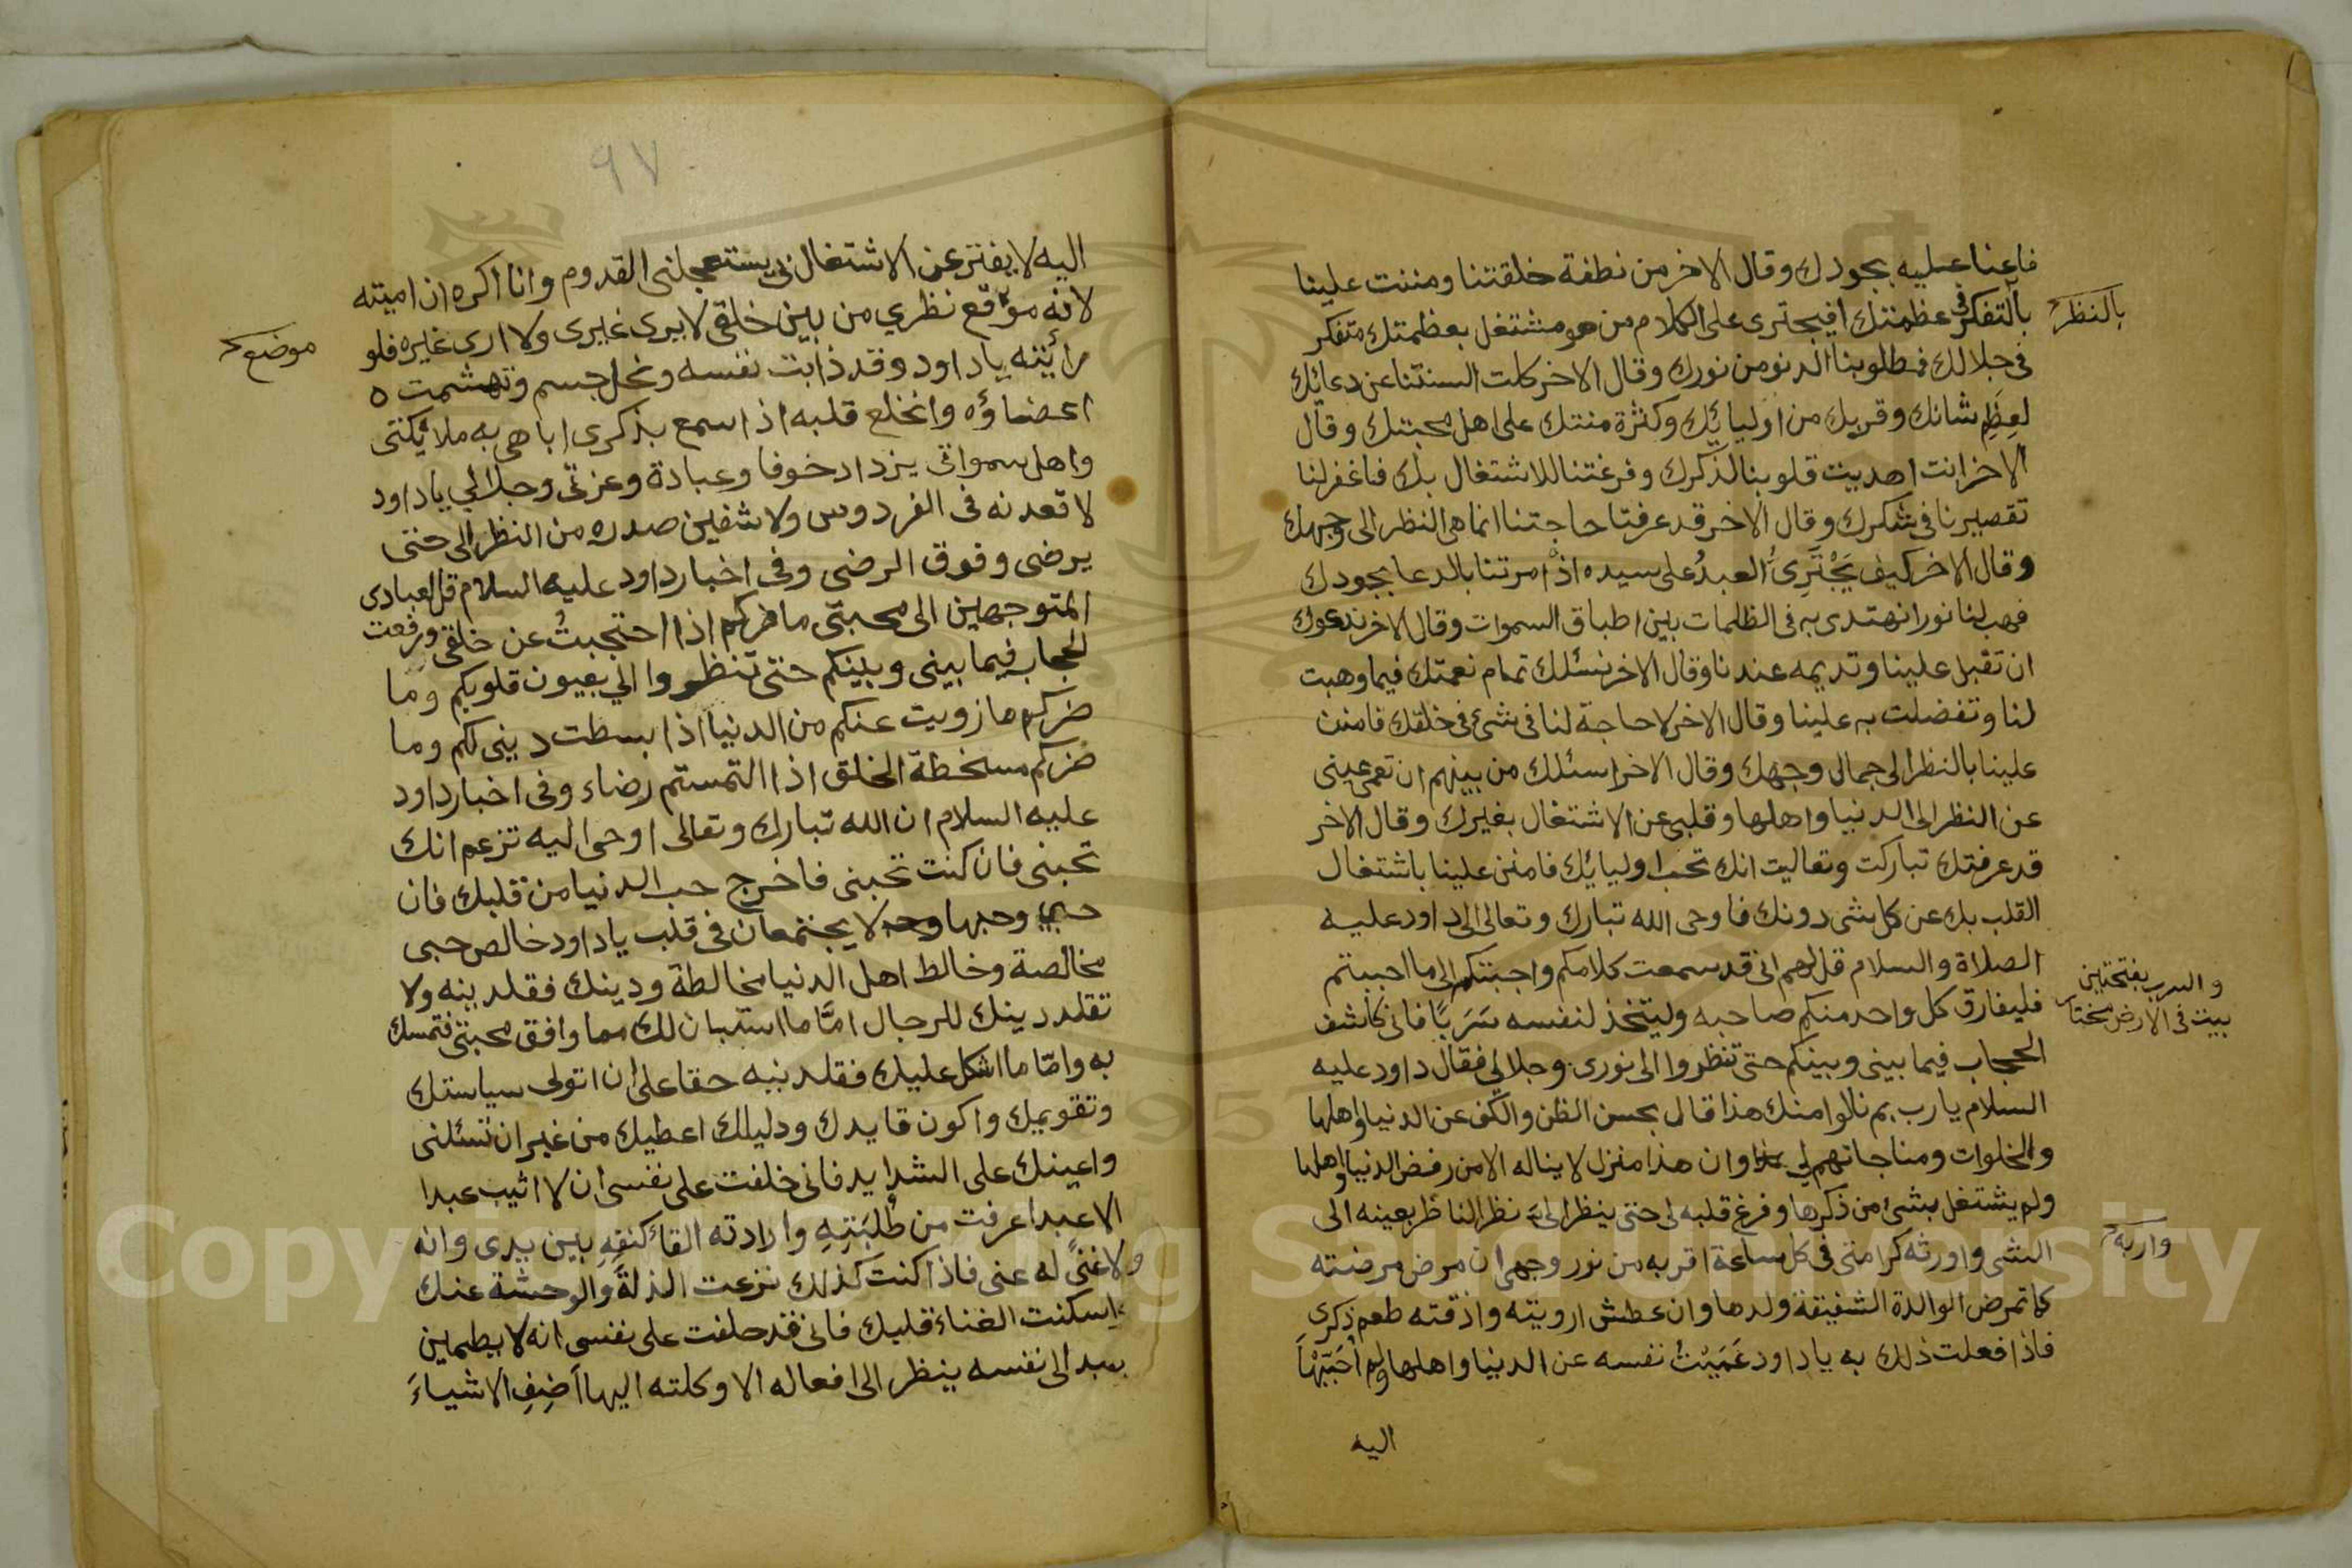 فاعنا عليه بجودك وقال الاخر من نطفة خلقتنا ومننت علينا
بالتفكر في عظمتك افيجترى على الكلام من هو مشتغل بعظمتك متفكر
بالنظر
في جلالك فمطلوبنا الدنو من نورك وقال الاخر كلت السنتنا عن دعائك
لعِظَمِ شانك وقربك من اوليائك وكثرة منتك على اهل محبتك وقال
الاخر انت اهديت قلوبنا لذكرك وفرغتنا للاشتغال بك فاغفر لنا
تقصيرنا في شكرك وقال الاخر قد عرفت حاجتنا انما هى النظر الى وجهك
وقال الاخر كيف يَجْتَرِئُ العبدُ على سيده اذ امرتنا بالدعا بجودك
فهب لنا نورا نهتدى به فى الظلمات بين اطباق السموات وقال الاخر ندعوك
ان تقبل علينا وتديمه عندنا وقال الاخر نسئلك تمام نعمتك فيما وهبت
لنا وتفضلت به علينا وقال الاخر لا حاجة لنا فى شئ فى خلقك فامنن
علينا بالنظر الى جمال وجهك وقال الاخر اسئلك من بينهم ان تعمى عينى
عن النظر الى الدنيا واهلها وقلبى عن الاشتغال بغيرك وقال الاخر
قد عرفتك تباركت وتعاليت انك تحب اوليائك فامنن علينا باشتغال
القلب بك عن كل شى دونك فاوحى الله تبارك وتعالى الى داود عليه
الصلاة والسلام قل لهم انى قد سمعت كلامكم واجبتكم الى ما احببتم
والسرب بفتحتين
بيت فى الارض مختار
فليفارق كل واحد منكم صاحبه وليتخذ لنفسه سَرَبًا فانى كاشف
الحجاب فيما بينى وبينكم حتى تنظروا الى نورى وجلالى فقال داود عليه
السلام يا رب بم نالوا منك هذا قال بحسن الظن والكف عن الدنيا واهلها
والخلوات ومناجاتهم لى وان هذا منزل لا يناله الا من رفض الدنيا واهلها
ولم يشتغل بشئ من ذكرها وفرغ قلبه لى حتى ينظر الىَّ نظر الناظر بعينه الى
الشى واورثه كرامتى فى كل ساعة اقربه من نور وجهى ان مرض مرضته
واريه
كما تمرض الوالدة الشفيقة ولدها وان عطش ارويته واذقته طعم ذكرى
فاذا فعلت ذلك به يا داود عَمَيْتُ نفسه عن الدنيا واهلها ولم اُحَبِّبْهَا
اليه
٩٧
اليه لا يفتر عن الاشتغال بى يستعجلنى القدوم وانا اكره ان اميته
لانه موقع نظري من بين خلقى لا يرى غيرى ولا ارى غيره فلو
موضع
رأيته يا داود وقد ذابت نفسه ونحل جسمه وتهشمت
اعضاؤه وانخلع قلبه اذا سمع بذكرى اباهى به ملائكتى
واهل سمواتى يزداد خوفا وعبادة وعزتى وجلالي يا داود
لاقعدنه فى الفردوس ولاشفين صدره من النظر الى حتى
يرضى وفوق الرضى وفى اخبار داود عليه السلام قل لعبادى
المتوجهين الى محبتى ما ضركم اذا احتجبتُ عن خلقى ورفعت
الحجاب فيما بينى وبينكم حتى تنظروا الي بعيون قلوبكم وما
ضركم ما زويت عنكم من الدنيا اذا بسطت دينى لكم وما
ضركم مسخطة الخلق اذا التمستم رضاء وفى اخبار داود
عليه السلام ان الله تبارك وتعالى اوحى اليه تزعم انك
تحبنى فان كنت تحبنى فاخرج حب الدنيا من قلبك فان
حبي وحبها لا يجتمعان فى قلب يا داود خالص حبى
مخالصة وخالط اهل الدنيا مخالطة ودينك فقلدينه ولا
تقلد دينك للرجال امَّا ما استبان لك مما وافق محبتى فتمسك
به وامّا ما اشكل عليك فقلدنيه حقا على ان اتولى سياستك
وتقويمك واكون قايدك ودليلك اعطيك من غير ان تسئلنى
واعينك على الشدايد فانى خلفت على نفسى ان لا اثيب عبدا
الا عبدا عرفت من طُلْبَتِهِ وارادته القاء كنفِهِ بين يدى وانه
ولا غنىً له عنى فاذا كنت كذلك نزعت الذلةَ والوحشة عنك
واسكنت الغناء قلبك فانى قد حلفت على نفسى انه لا يطمين
عبد الى نفسه ينظر الى افعاله الا وكلته اليها اَضِفِ الاشياءَ